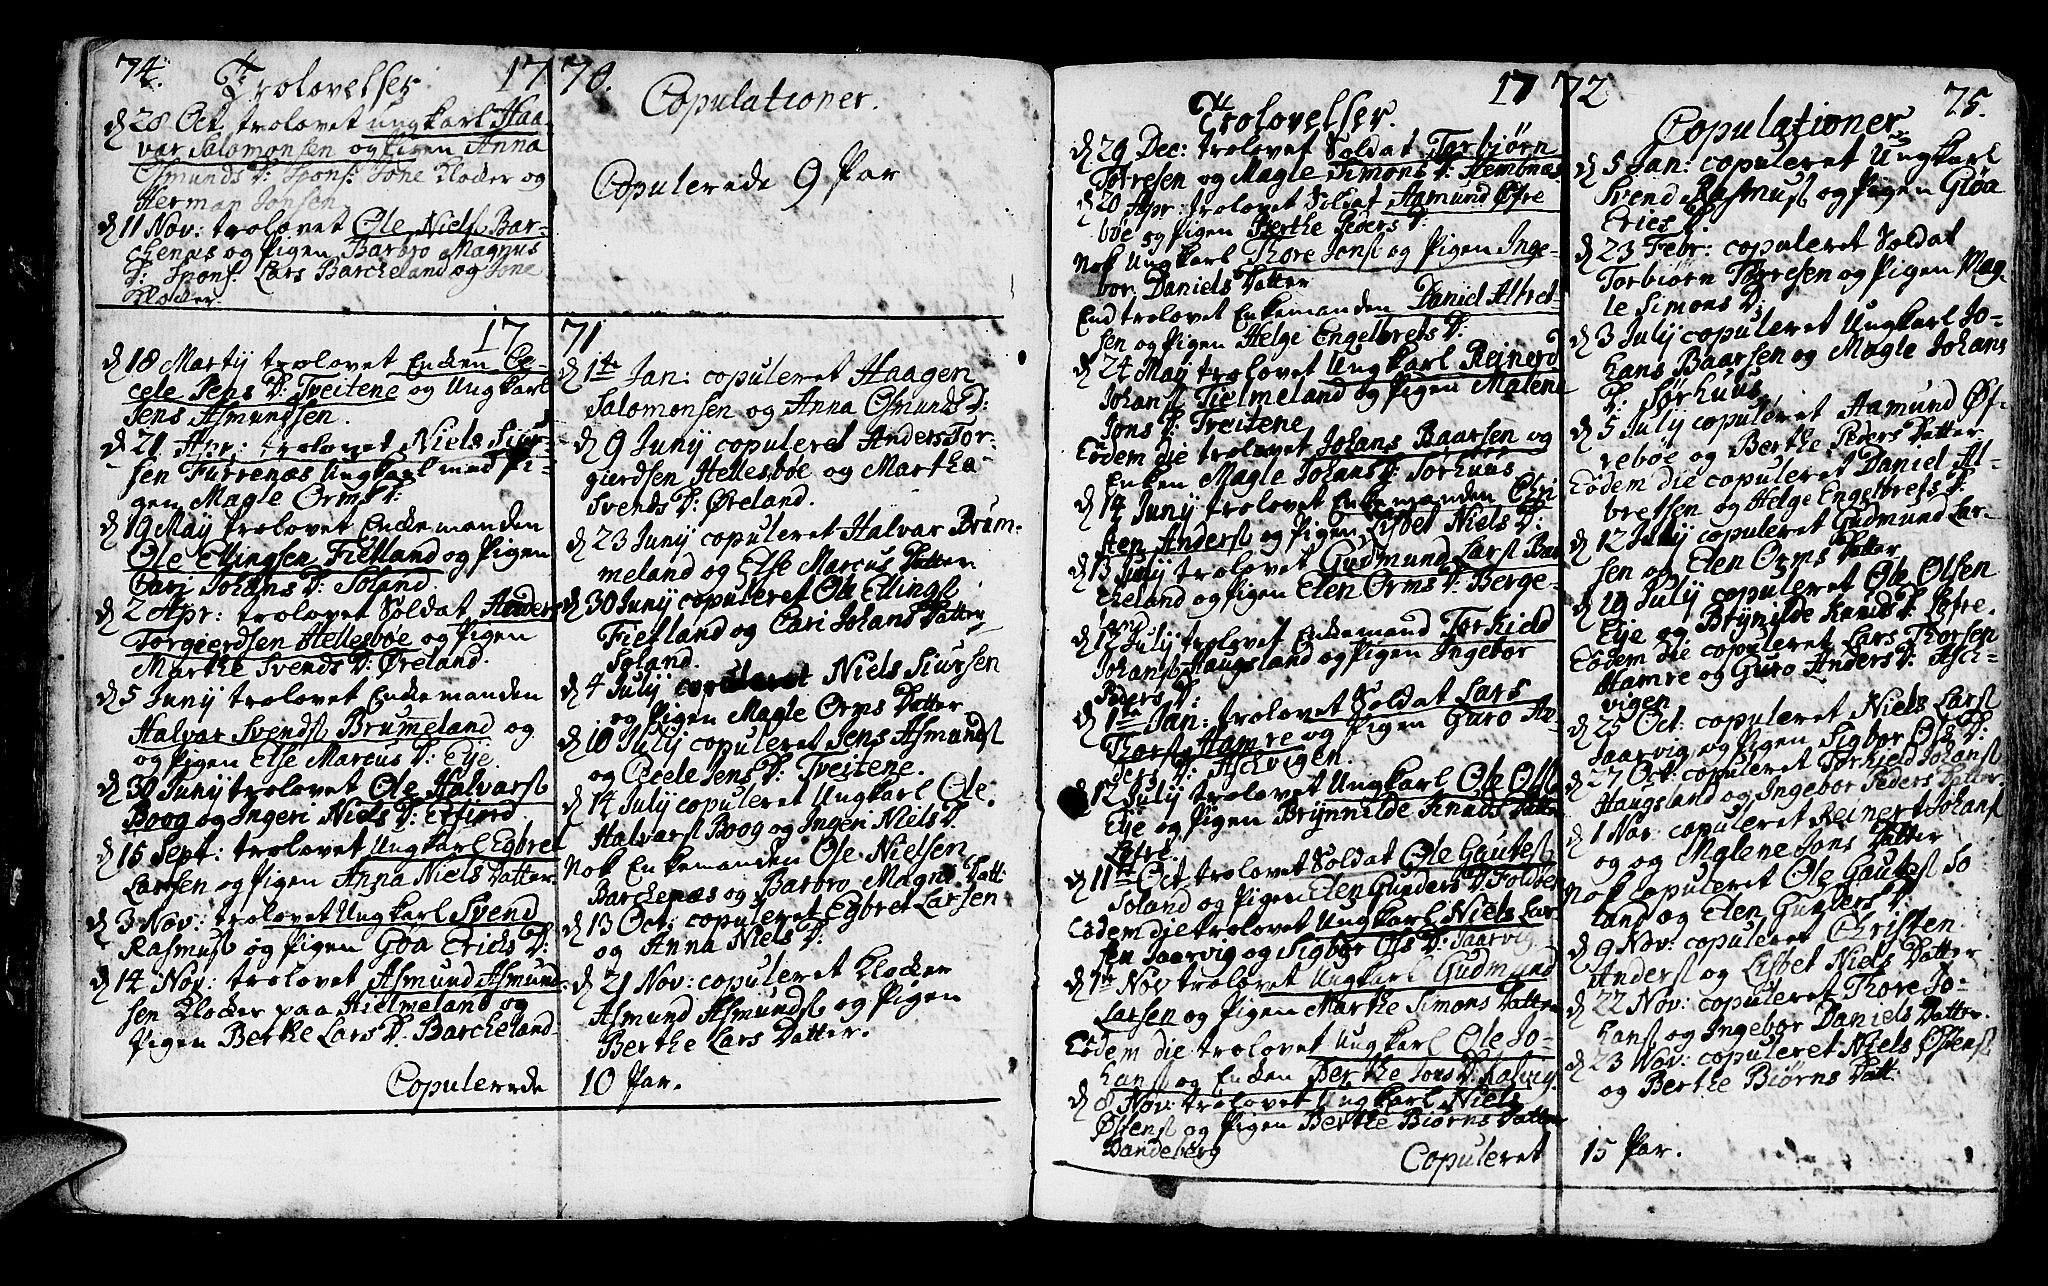 74.
Trolovelser
1770.
Copulationer.
đ 28 Oct. trolovet ungkarl Haa-
var Salomonsen og Pigen Anna
Osmunds D: Spons: Jone Klocker og
Herman Jonsen
đ 11 Nov: trolovet Ole Niels: Bar-
chenæs og Pigen Barbro Magnus
D: Spons: Lars Barcheland og Jone
Klocker.
Copulerede 9 Par
1771
đ 18 Martij trolovet Encken Ce-
cele Jens D: Tveitene og Ungkarl
Jens Asmundsen.
đ 21 Apr: trolovet Niels Siur-
sen Furrenæs Ungkarl med Pi-
gen Magle Orms D:
đ 19 Maij trolovet Enckemanden
Ole Ellingsen Fietland og Pigen
Cari Johans D: Soland
đ 2 Apr: trolovet Soldat Anders
Torgierdsen Hellesböe og Pigen
Marthe Svends D: Øreland.
đ 5 Junij trolovet Enckemanden
Halvar Svends: Brumeland og
og Pigen Else Marcus D: Eje.
đ 30 Junij trolovet Ole Halvars:
Boog og Ingeri Niels D: Erfiord
đ 15 Sept: trolovet Ungkarl Egbret
Larsen og Pigen Anna Niels Datter
đ 3 Nov: trolovet Ungkarl Svend
Rasmus: og Pigen Göa Erichs D:
đ 14 Nov: trolovet Asmund Asmund-
sen Klocker paa Hielmeland og
Pigen Berthe Lars D: Barcheland
đ 1te Jan: copuleret Haagen
Salomonsen og Anna Osmunds D:
đ 9 Junij copuleret Anders Tor-
gierdsen Hellesböe og Martha
Svends D: Øreland.
đ 23 Junij copuleret Halvar Brum-
meland og Else Marcus Datter
đ 30 Junij copuleret Ole Ellings:
Fietland og Cari Johans Datter
Soland.
đ 4 Julij copuleret Niels Siursen
og Pigen Magle Orms Datter
đ 10 Julij copuleret Jens Asmunds:
og Cecele Jens D: Tveitene.
đ 14 Julij copuleret Ungkarl Ole
Halvars: Boog og Ingeri Niels D.
Nok Enkemanden Ole Nielsen
Barchenæs og Barbro Magn: Datt:
đ 13 Oct: copuleret Egbret Larsen
og Anna Niels D:
đ 21 Nov: copuleret Klocker
Asmund Asmunds: og Pigen
Berthe Lars Datter.
Copulerede 10 Par.
1772
75.
Trolovelser.
Copulationer
đ 29 Dec: trolovet Soldat Torbjørn
Torresen og Magle Simons D:
đ 20 Apr: trolovet Soldat Aamund Øfre
böe og Pigen Berthe Peders D:
Nok Ungkarl Thore Jons: og Pigen Inge-
bor Daniels Datter
End trolovet Enkemanden Daniel Albret-
sen og Pigen Helge Engelbrets D:
đ 24 Maij trolovet Ungkarl Reinerd
Johans: Fielmeland og Pigen Malene
Jons D: Treitene
Eodem die trolovet Johans Baarsen og
Enken Magle Johans D: Sørhuus
đ 14 Junij trolovet Enkemanden Chri
sten Anders: og Pigen Lisbet Niels D:
đ 13 Junij trolovet Gudmund Lars: Bar-
cheland og Pigen Elen Orms D: Berge-
land
đ 12 Julij trolovet Enkemand Torkield
Johans: Haugsland og Pigen Ingebor
Peders D:
đ 1te Jan: trolovet Soldat Lars
Thors: Hamre og Pigen Guro An-
ders D: Aschvigen.
đ 12 Julij trolovet Ungkarl Ole Ols:
Eje og Pigen Brynnilde Knuds Datter
Løfre.
đ 11te Oct trolovet Soldat Ole Gautes:
Soland og Pigen Elen Gunders D: Foldøen
Eodem die trolovet Ungkarl Niels Lar-
sen Jaarvig og Sigbor Ols D: Jaarvig
đ 1te Nov trolovet Ungkarl Gudmund
Larsen og Pigen Marthe Simons Datter
Eodem die trolovet Ungkarl Ole Jo-
hans: og Encken Berthe Jons D: Kalvig.
đ 8 Nov: trolovet Ungkarl Niels
Østens: og Pigen Berthe Biørns Datter
Dandeberg
đ 5 Jan: copuleret Ungkarl
Svend Rasmus: og Pigen Gløa
Erics D:
đ 23 Febr: copuleret Soldat
Torbiørn Torresen og Pigen Mag-
le Simons D:
đ 3 Julij copuleret Ungkarl Jo-
hans Baarsen og Magle Johans
D: Sørhuus
đ 5 Julij copuleret Aamund Øf-
reböe og Berthe Peders Datter
Eodem die copuleret Daniel Al-
bretsen og Helge Engelbrets D:
đ 12 Julij copuleret Gudmund Lar-
sen og Elen Orms Datter
đ 19 Julij copuleret Ole Olsen
Eje og Brynilde Knuds D: Løfre.
Eodem die copuleret Lars Thorsen
Hamre og Guro Anders D: Asch-
vigen
đ 25 Oct: copuleret Niels Lars:
Jaarvig og Pigen Sigbor Ols D:
đ 27 Oct: copuleret Torkield Johans:
Haugsland og Ingebor Peders Datter
đ 1 Nov: copuleret Reinert Johans:
og og Malene Jons Datter
Nok copuleret Ole Gautes: So
land og Elen Gunders D:
đ 9 Nov: copuleret Christen
Anders: og Lisbet Niels Datter
đ 22 Nov: copuleret Thore Jo-
hans: og Ingebor Daniels Datter.
đ 23 Nov: copuleret Niels Østens:
og Berthe Biørns Datt:
Copuleret 15 Par.